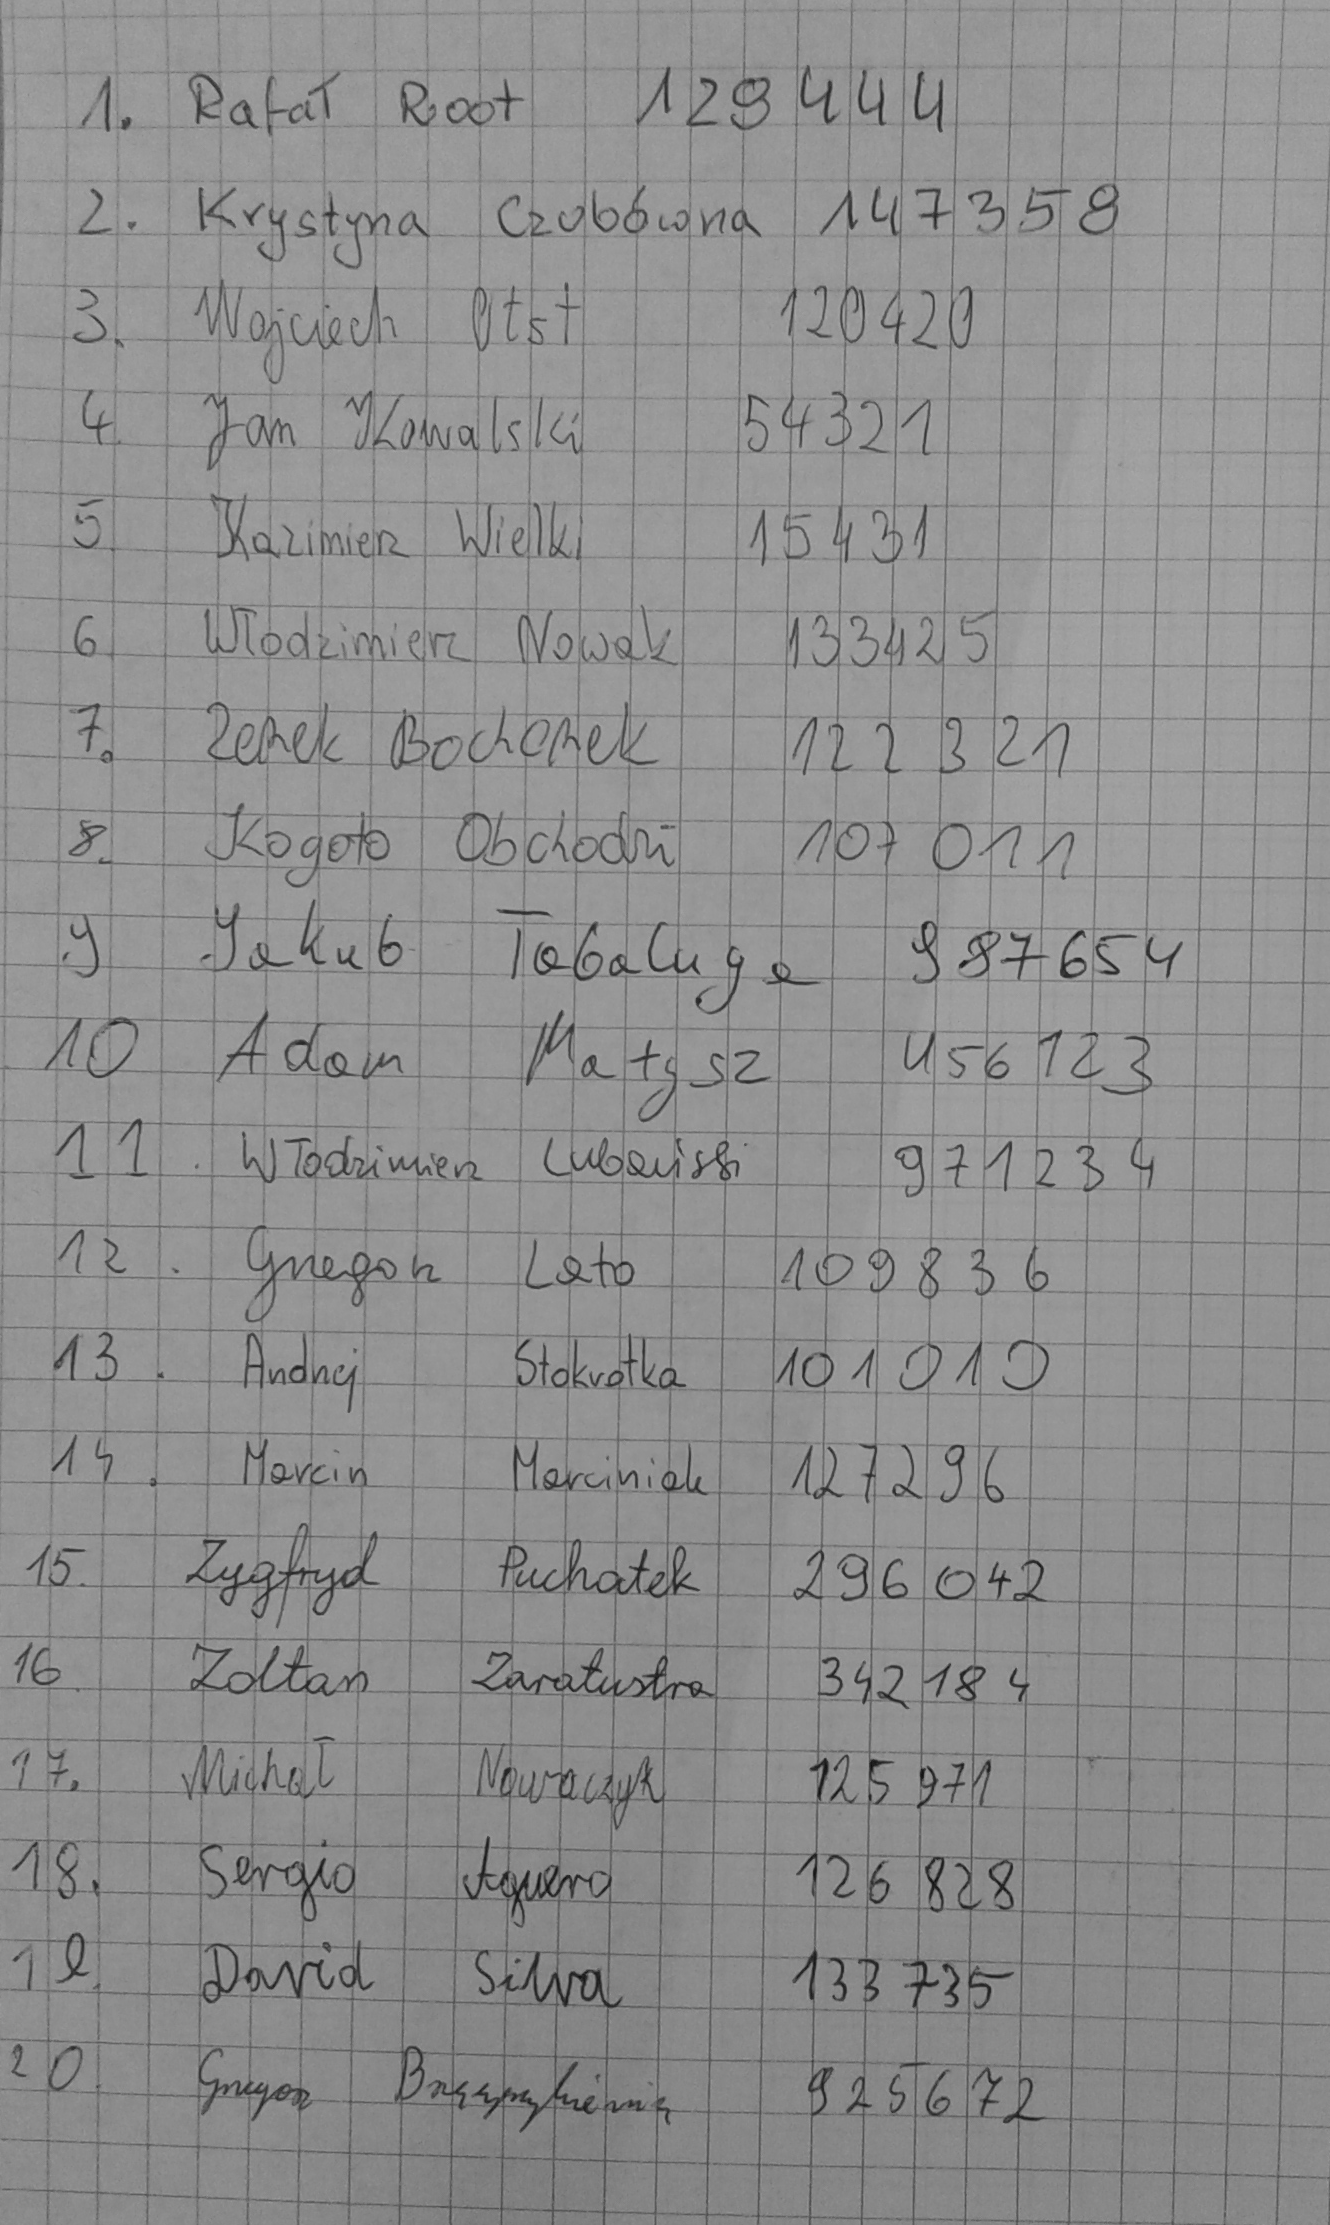 1. Rafał Root 129444
2. Krystyna Czubówna 147358
3. Wojciech Otst 120420
4. Jan Kowalski 54321
5 Kazimierz Wielki 15431
6 Włodzimierz Nowak 133425
7. Zenek Bochenek 122321
8. Kogoto Obchodzi 107011
9 Jakub Tabaluga 987654
10 Adam Matysz 456123
11. Włodzimierz 971234
12. Grzegorz Lato 109836
13. Andrzej Stokrotka 101010
14. Marcin Marciniak 127296
15. Zygfryd Puchatek 296042
16 Zoltan Zaratustra 342184
17. Michał Nowaczyk 125971
18. Sergio Aguero 126828
19. David Silva 133735
20. Grzegorz 925672